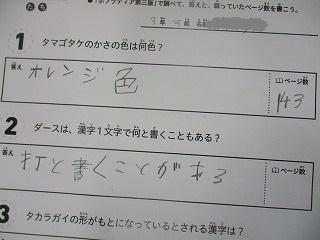 たち
ポプラディア第三版」で調べて、答えと、載っていたページ数を書こう。
3年
1 タマゴタケのかさの色は何色?
答え ページ数
オレンジ色 143
2 ダースは、漢字1文字で何と書くこともある?
答え ページ数
打と書くことがある
3 タカラガイの形がもとになっているとされる漢字は?